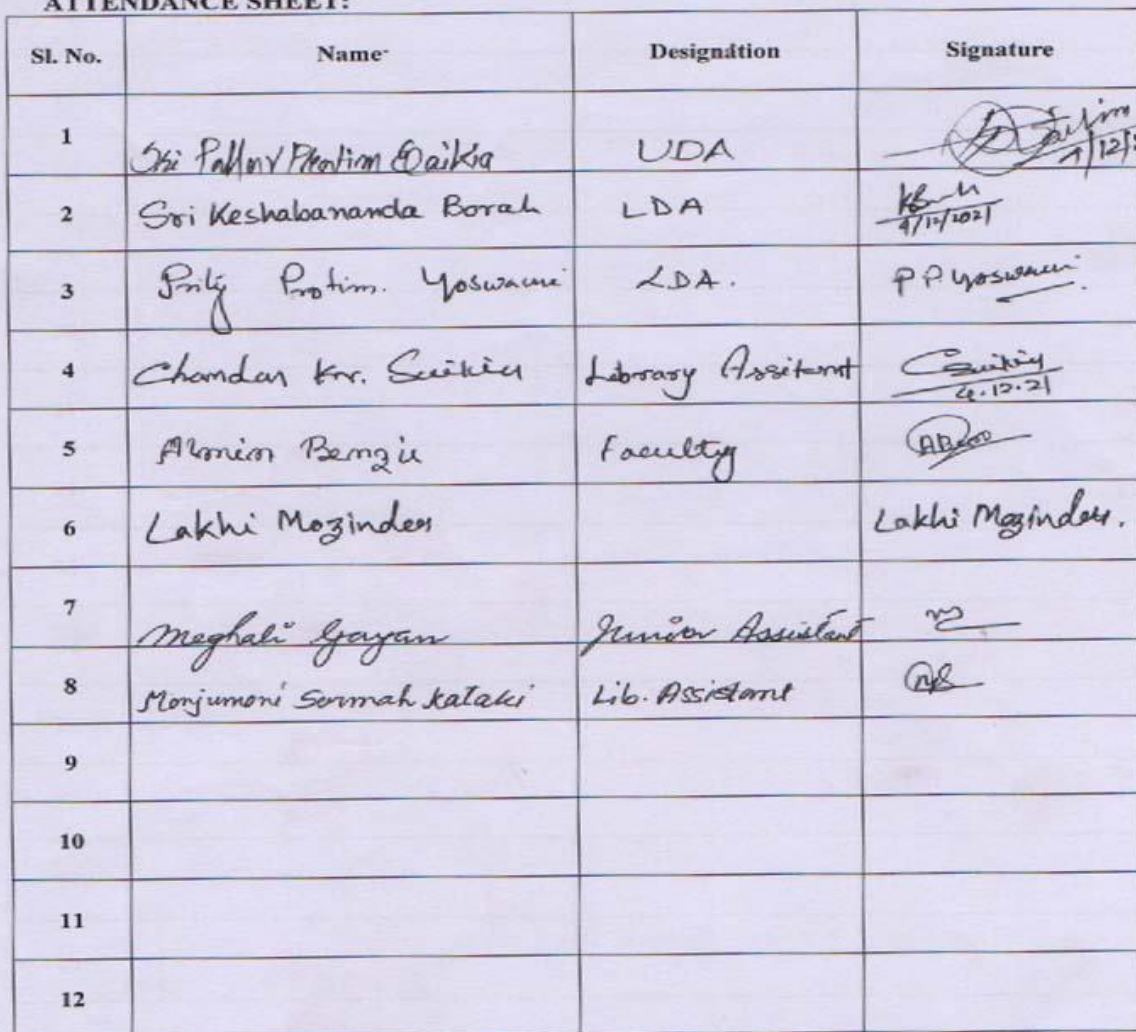 ATTENDANCE SHEET:
Sl. No. Name Designation Signature
1 Sri Pallav Pratim Saikia UDA
2 Sri Keshabananda Borah LDA 4/12/2021
3 Protim Goswami LDA. P.P. Goswami
4 Chandan Kr. Saikia Library Assitant CSaikia
4.12.21
5 Faculty
6 Lakhi Mozinder Lakhi Mozinder.
7 Meghali Gayan Junior Assistant
8 Monjumoni Sarmah Kataki Lib. Assistant
9
10
11
12